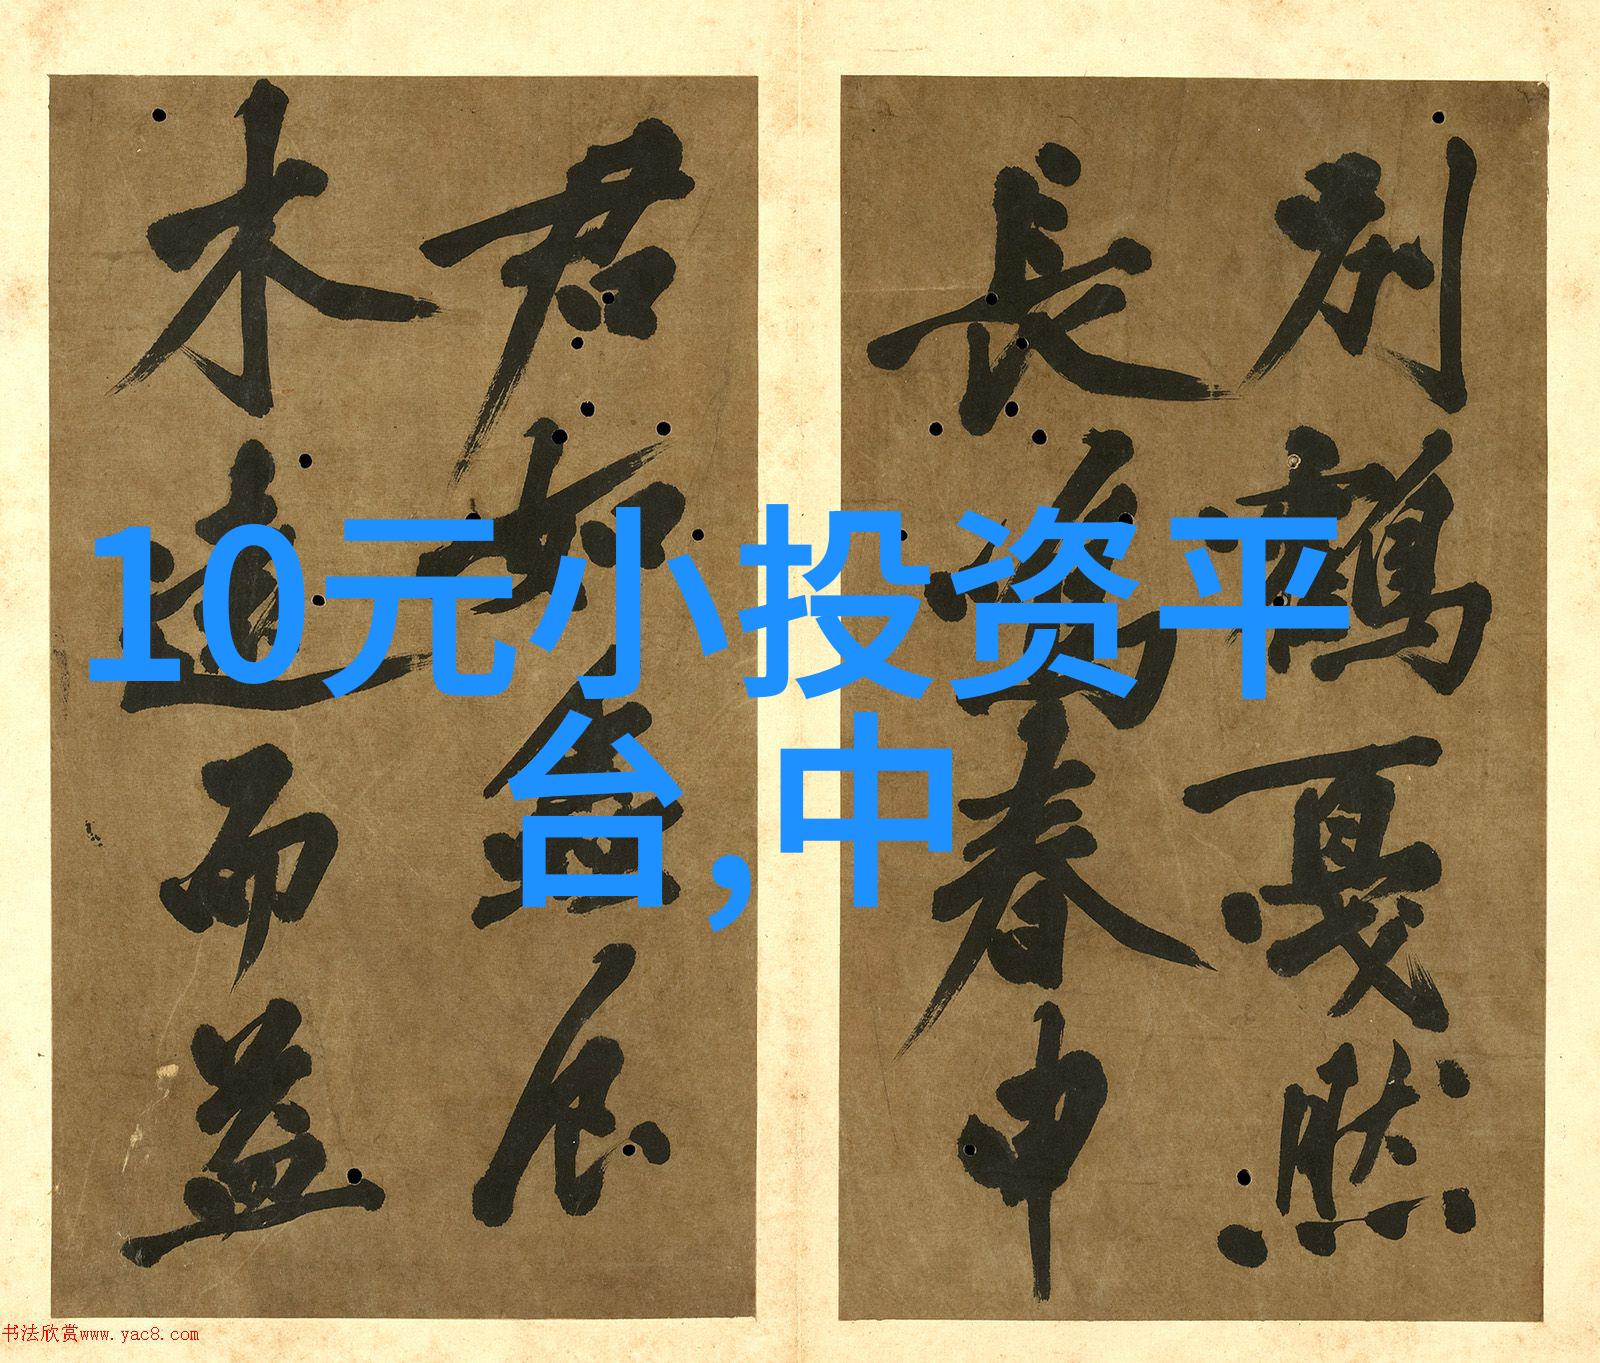 别鶴戛然
長鳴春申
君如
木遠而益
10元小投资平
台,中
书法欣赏www.yac8.com